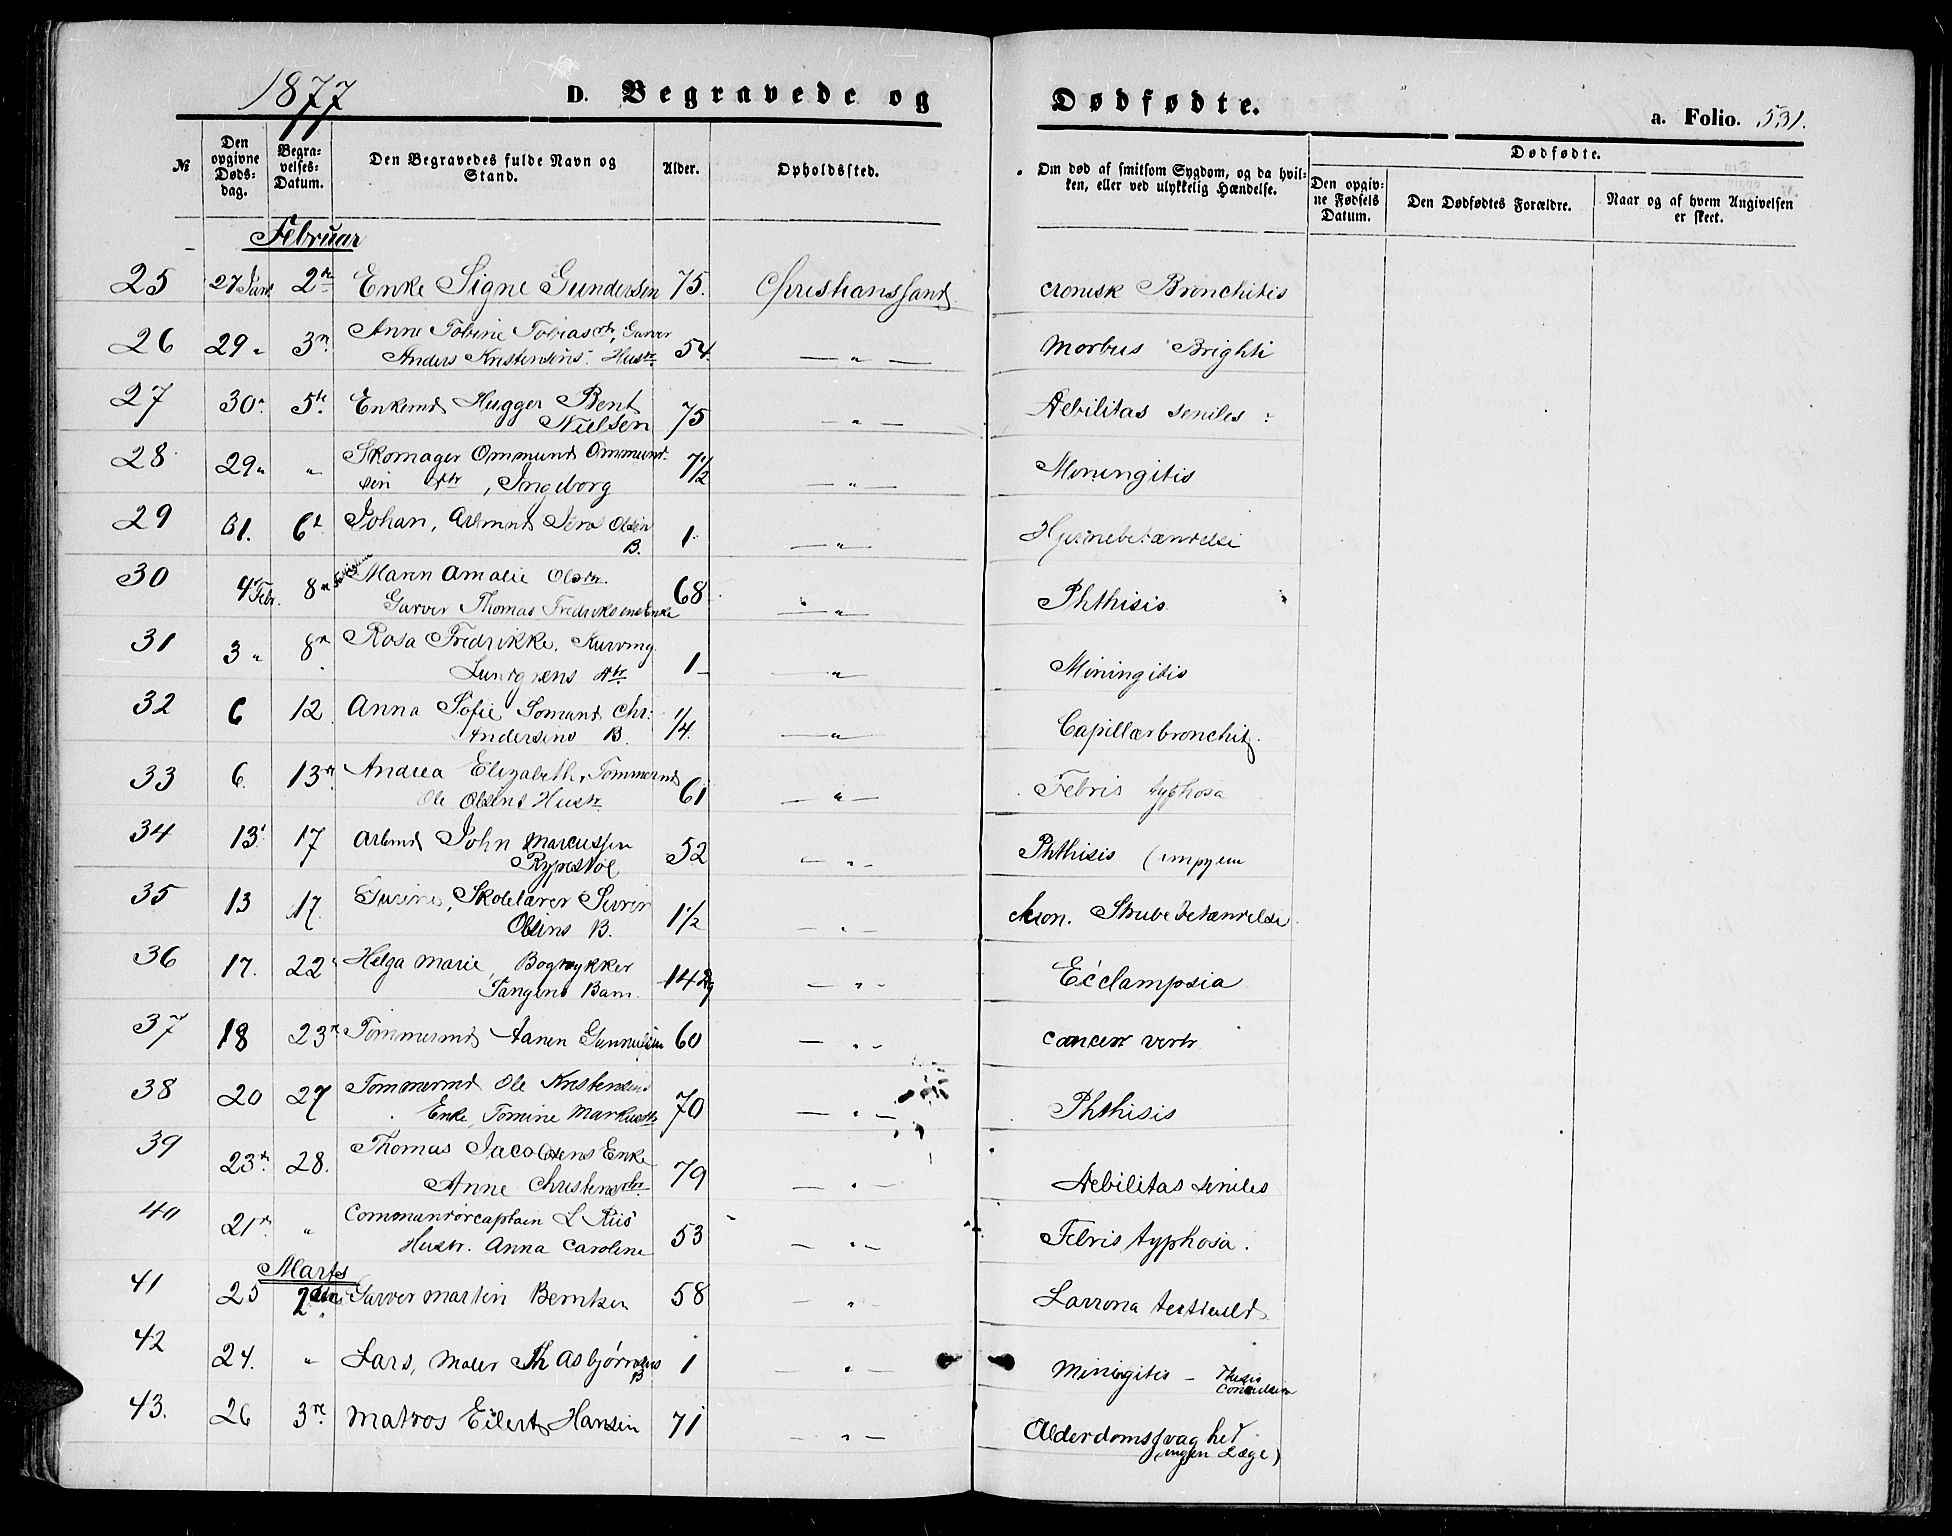 1877
D. Begravede og Dødfødte.
a. Folio. 531.
№ Den opgivne Dødsdag. Begravelses-Datum. Den Begravedes fulde Navn og Stand. Alder. Opholdssted. Om død af smitsom Sygdom, og da hvilken, eller ved ulykkelig Hændelse. Dødfødte. Den opgivne Fødsels Datum. Den Dødfødtes Forældre. Naar og af hvem Angivelsen er skeet.
Februar
25 27 Jan. 2den Enke Signe Gundersen 75. Christianssand cronisk Bronchitis
26 29 " 3n. Anne Tobine Tobiasdtr, Garver
Anders Kristensens Hustr. 54. — " — Morbus Brighti
27 30. 5te Enkemd Hugger Bent
Nielsen 75 — " — Debilitas seniles
28 29 " " Skomager Ommund Ommund-
sen Dtr, Ingeborg 7½ — " — Meningitis
29 31. 6t Johan, Arbmd Jens Olsen
B. 1 — " — Hjernebetændelse
30 4 Febr. 8n Maren Amalie Olsdtr.
Garver Thomas Fredriksens Enke 68 — " — Phthisis
31 3 " 8n Rosa Fredrikke, Kurvmg
Lundgrens Dtr. 1 — " — Miningitis
32 6 12 Anna Sofie Sømand Chr.
Andersens B. ¼ — " — Capillærbronchit.
33 6. 13n Andrea Elizabeth, Tømmermd
Ole Olsens Hustr 61 — " — Febris typhosa
34 13. 17 Arbmd John Marcussen
Rypestøl 52 — " — Phthisis (empyem
35 13 17. Skolelærer
Olsens B. 1½ — " — Strubebetændelse
36 17. 22 Helga Marie, Bogtrykker
Tangens Barn. 14 Dg — " — Ecclampsia
37 18 23n Tømmermd Aanen Gunnufsen 60 — " — Cancer ventr
38 20 27 Tømmermd Ole Kristensens
Enke, Tomine Markusdtr 70 — " — Phthisis
39 23n. 28. Thomas Jacobsens Enke
Anne Christensdtr. 79 — " — Debilitas seniles
40 21n. " Commandørcaptain L Riis'
Hustr. Anna Caroline 53 — " — Febris typhosa.
Marts
41 25 2den Garver Martin Berntsen 58 — " —
42 24. " Lars, Maler Th Asbjørnsens
B 1 — " — Miningitis —
43. 26 3n Matros Eilert Hansen 71 — " — Alderdomssvaghed
(ingen Læge)